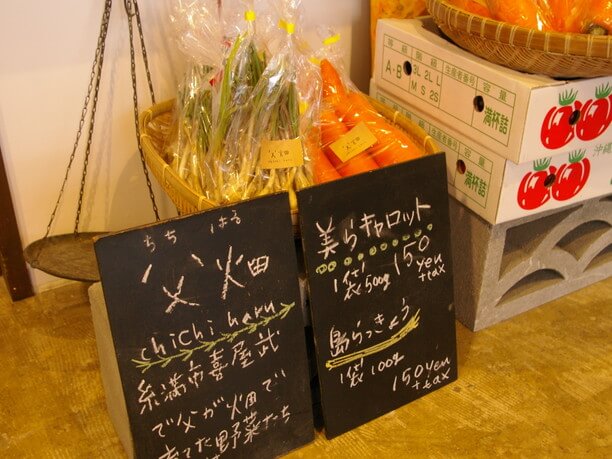 ちち はる
父畑
chichi haru
糸満市喜屋武
で父が畑で
育てた野菜たち
美らキャロット
1袋500g 150
yen
+tax
島らっきょう
1袋100g
150yen
+tax
父畑
等級 階級 生産者番号 容量
A・B 3L 2L L
M S 2S
満杯詰
容量
満杯詰
沖縄